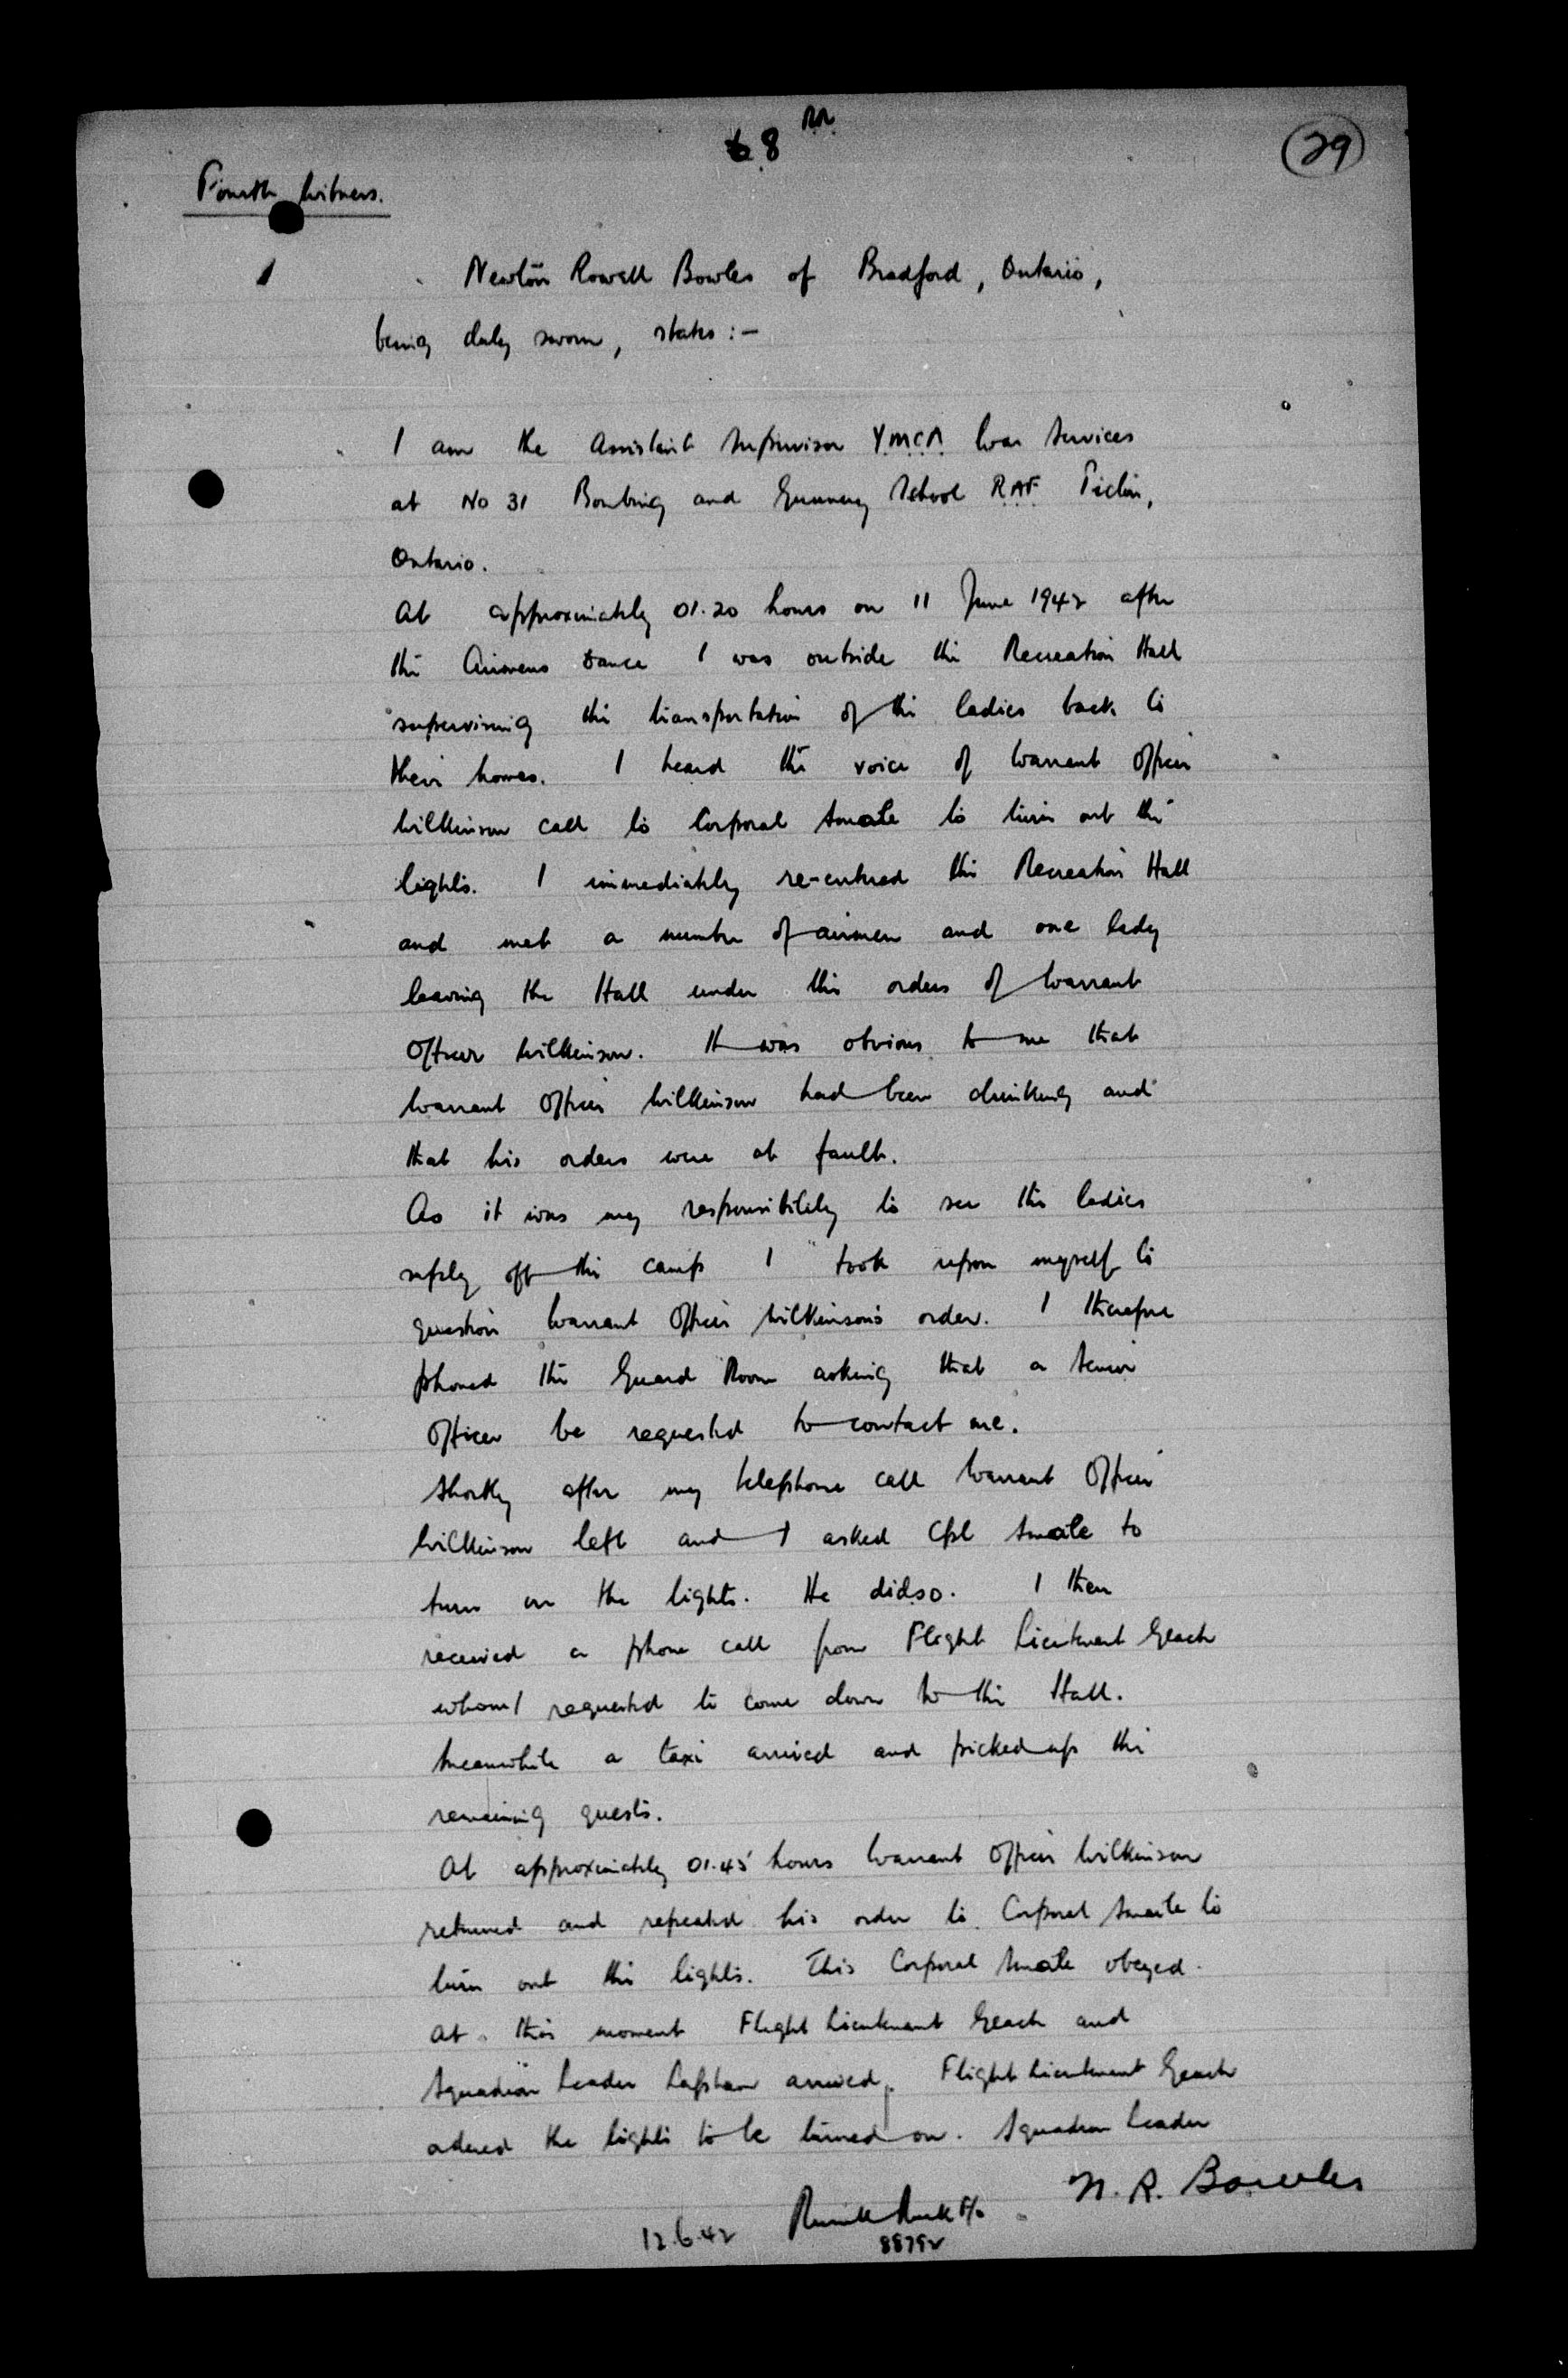 8 RR
29
Fourth Witness.
1 Newton Rowell Bowles of Bradford, Ontario,
being duly sworn, states :-
I am the Assistant Supervisor Y.M.C.A. War Services
at No 31 Bombing and Gunnery School R.A.F. Picton,
Ontario.
At approximately 01.20 hours on 11 June 1942 after
the Airmens Dance I was outside the Recreation Hall
supervising the transportation of the ladies back to
their homes. I heard the voice of Warrant Officer
Wilkinson call to Corporal Smale to turn out the
lights. I immediately re-entered the Recreation Hall
and met a number of airmen and one lady
leaving the Hall under the orders of Warrant
Officer Wilkinson. It was obvious to me that
Warrant Officer Wilkinson had been drinking and
that his orders were at fault.
As it was my responsibility to see the ladies
safely off the camp I took upon myself to
question Warrant Officer Wilkinson's order. I therefore
phoned the Guard Room asking that a senior
Officer be requested to contact me.
Shortly after my telephone call Warrant Officer
Wilkinson left and I asked Cpl Smale to
turn on the lights. He did so. I then
received a phone call from Flight Lieutenant Geach
whom I requested to come down to the Hall.
Meanwhile a taxi arrived and picked up the
remaining guests.
At approximately 01.45 hours Warrant Officer Wilkinson
returned and repeated his order to Corporal Smale to
turn out the lights. This Corporal Smale obeyed.
At this moment Flight Lieutenant Geach and
Squadron Leader Lapham arrived. Flight Lieutenant Geach
odered the lights to be turned on. Squadron Leader
N. R. Bowles
12.6.42 F/O
88792